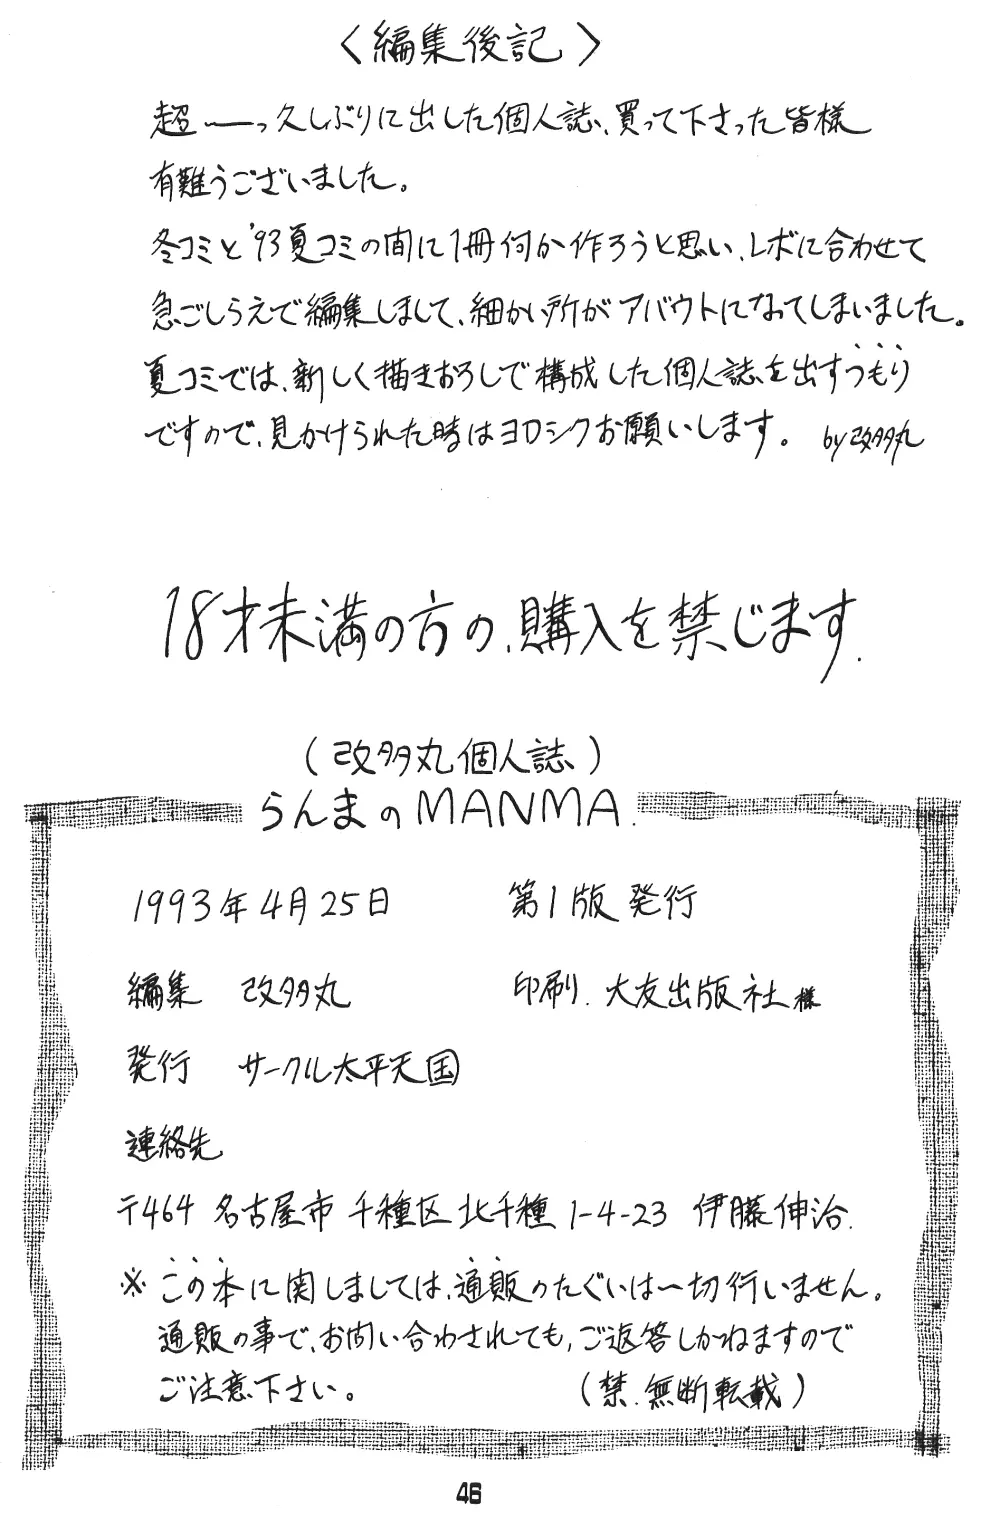 〈編集後記〉
超――っ久しぶりに出した個人誌、買って下さった皆様
有難うございました。
冬コミと'93夏コミの間に1冊何か作ろうと思い、レボに合わせて
急ごしらえで編集しまして、細かい所がアバウトになってしまいました。
夏コミでは、新しく描きおろしで構成した個人誌を出すつもり
ですので、見かけられた時はヨロシクお願いします。 by改多丸
18才未満の方の、購入を禁じます.
(改多丸個人誌)
らんまのMANMA.
1993年4月25日 第1版発行
編集 改多丸 印刷.大友出版社様
発行 サークル太平天国
連絡先
〒464 名古屋市千種区北千種1-4-23 伊藤伸治.
※この本に関しましては、通販のたぐいは一切行いません。
通販の事で、お問い合わされても、ご返答しかねますので
ご注意下さい。 (禁.無断転載)
46